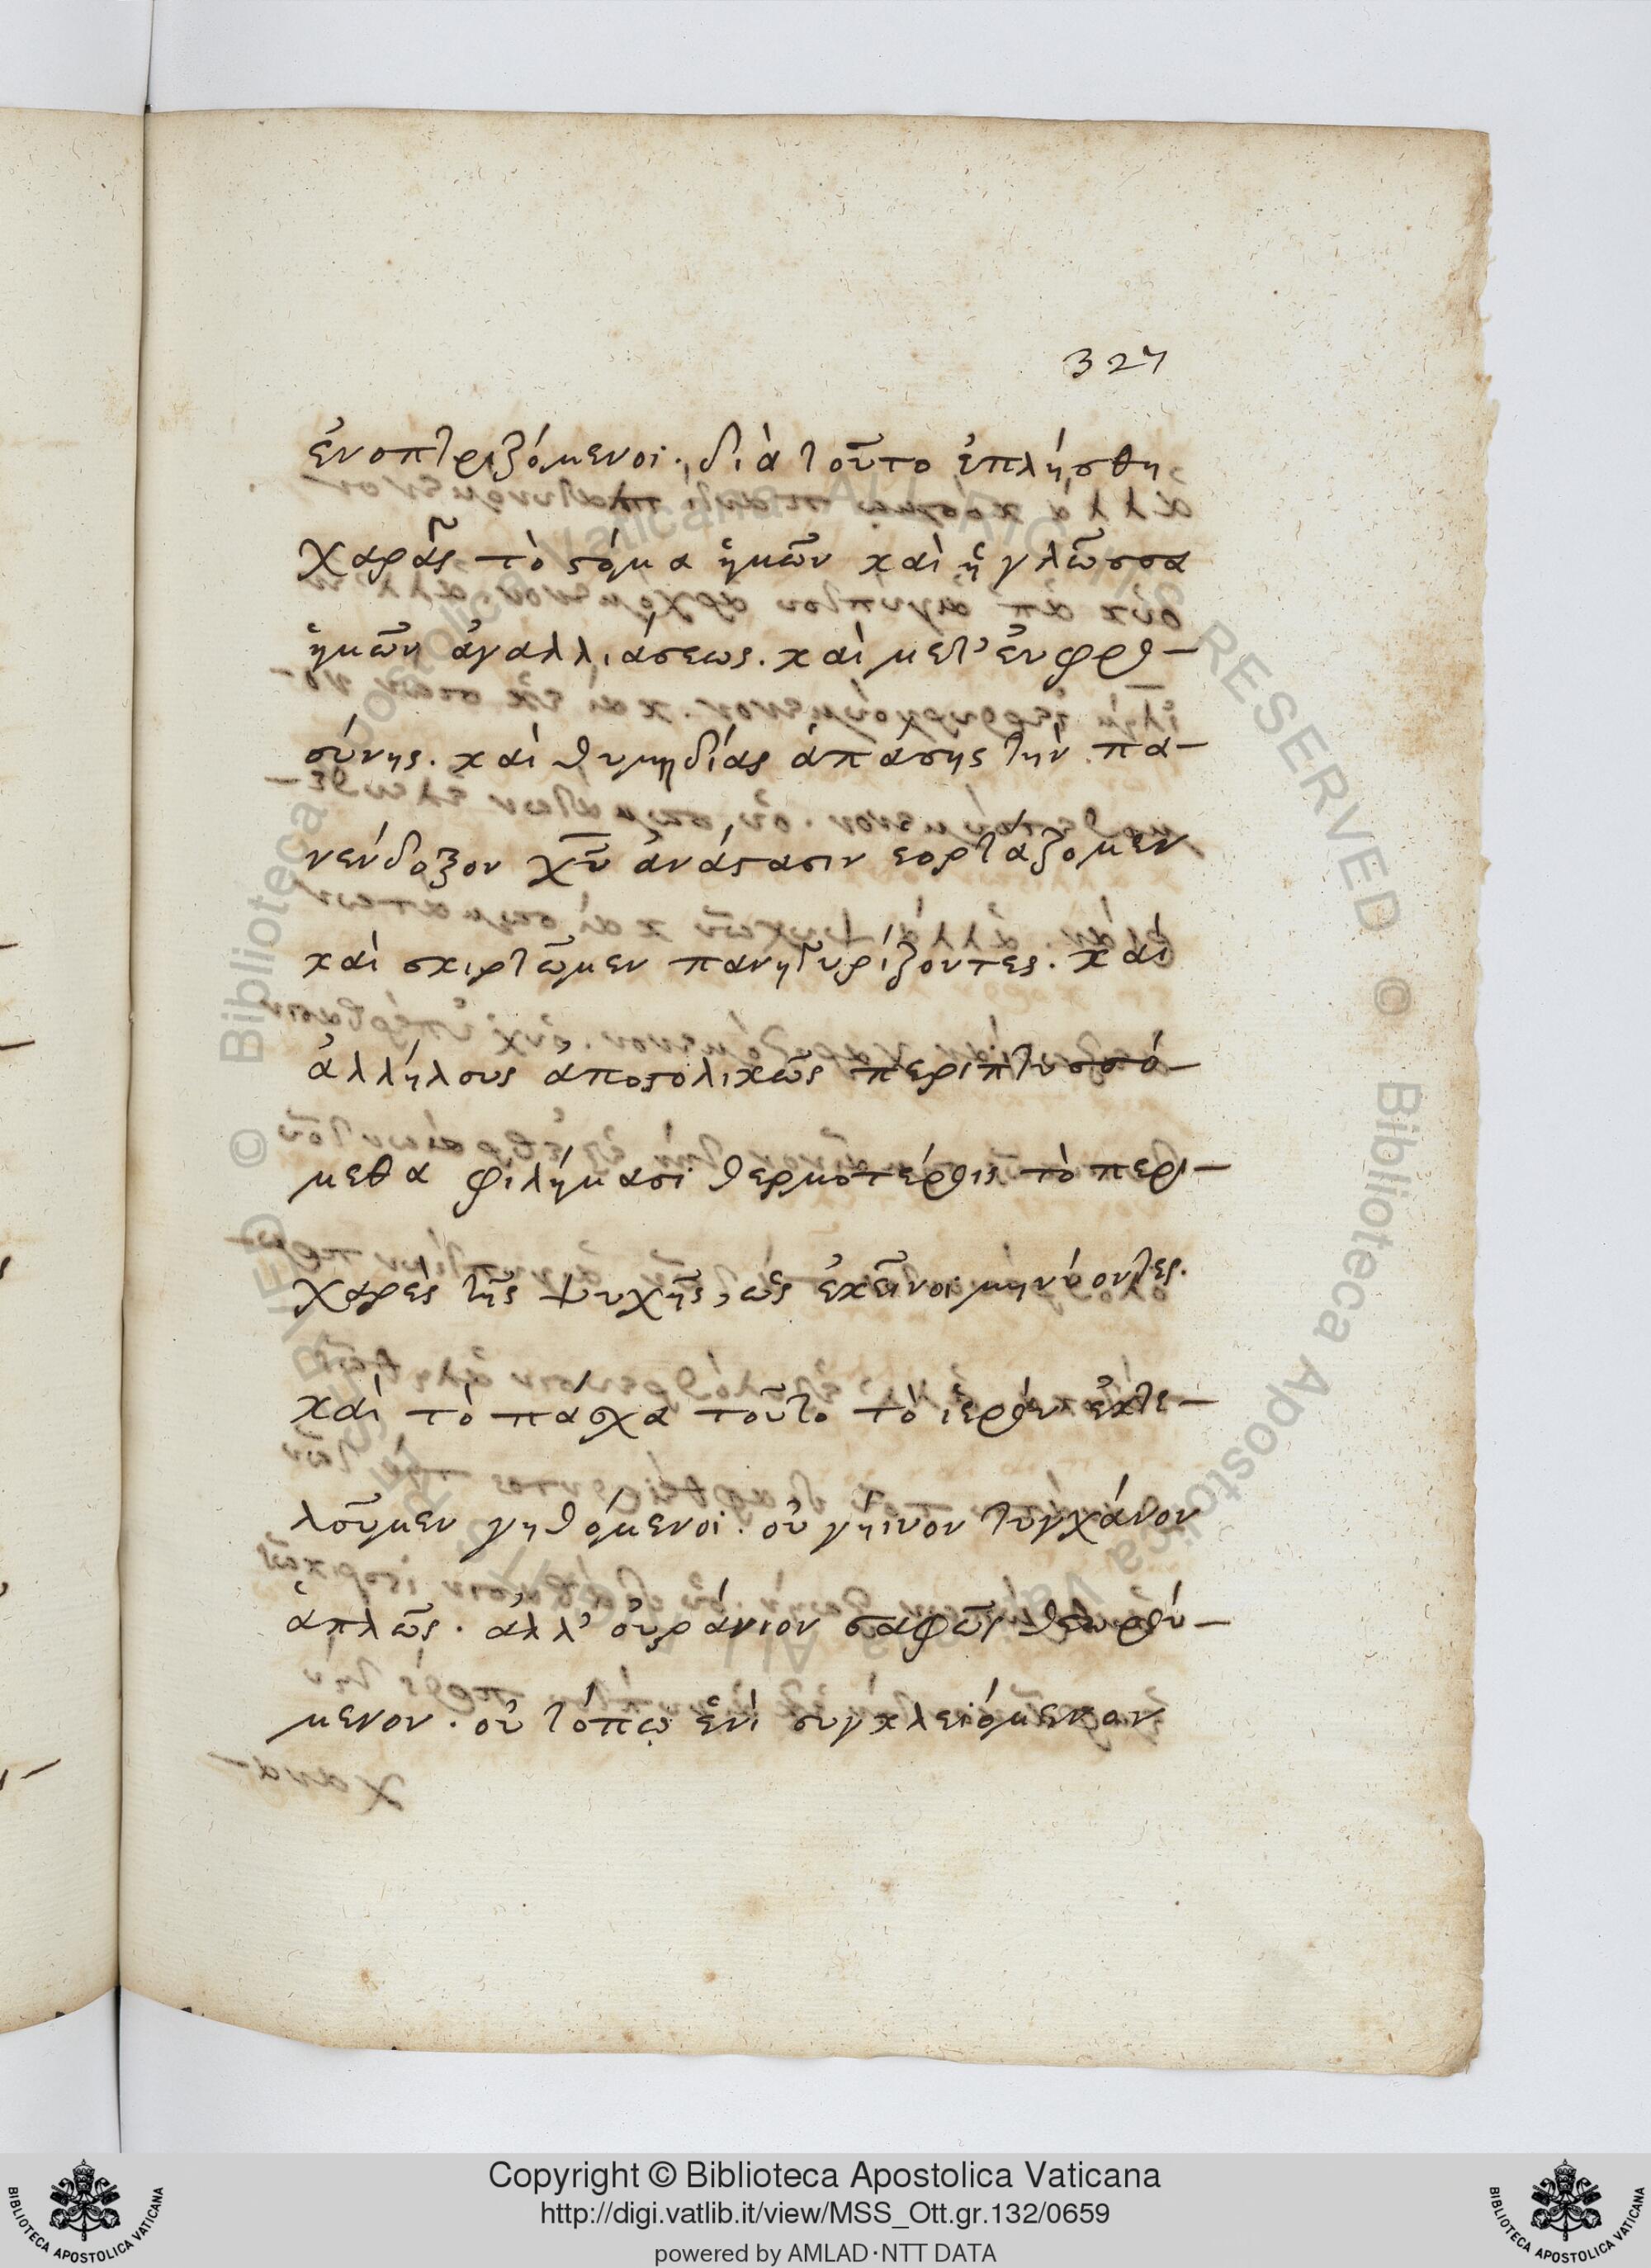 327
ἐνοπτριζόμενοι. διὰ τοῦτο ἐπλήσθη
χαρᾶς τὸ στόμα ἡμῶν καὶ ἡ γλῶσσα
ἡμῶν ἀγαλλιάσεως. καὶ μετ' ἐυφρο-
σύνης. καὶ θυμηδίας ἁπάσης τὴν πα-
νένδοξον χῦ ἀνάστασιν ἑορτάζομεν
καὶ σκιρτῶμεν πανηγυρίζοντες. καὶ
ἀλλήλους ἀποστολικῶς περιπτυσσό-
μεθα φιλήμασι θερμοτέροις τὸ περι-
χαρὲς τῆς ψυχῆς, ὡς ἐκεῖνοι μηνύοντες.
καὶ τὸ πάσχα τοῦτο τὸ ἱερὸν ἐκτε-
λοῦμεν γηθόμενοι. οὐ γήινον τυγχάνον
ἁπλῶς. ἀλλ' οὐράνιον σαφῶς θεωρού-
μενον. οὐ τόπῳ ἑνὶ συγκλειόμενον
Copyright © Biblioteca Apostolica Vaticana
http://digi.vatlib.it/view/MSS_Ott.gr.132/0659
powered by AMLAD·NTT DATA
BIBLIOTECA APOSTOLICA VATICANA
BIBLIOTECA APOSTOLICA VATICANA